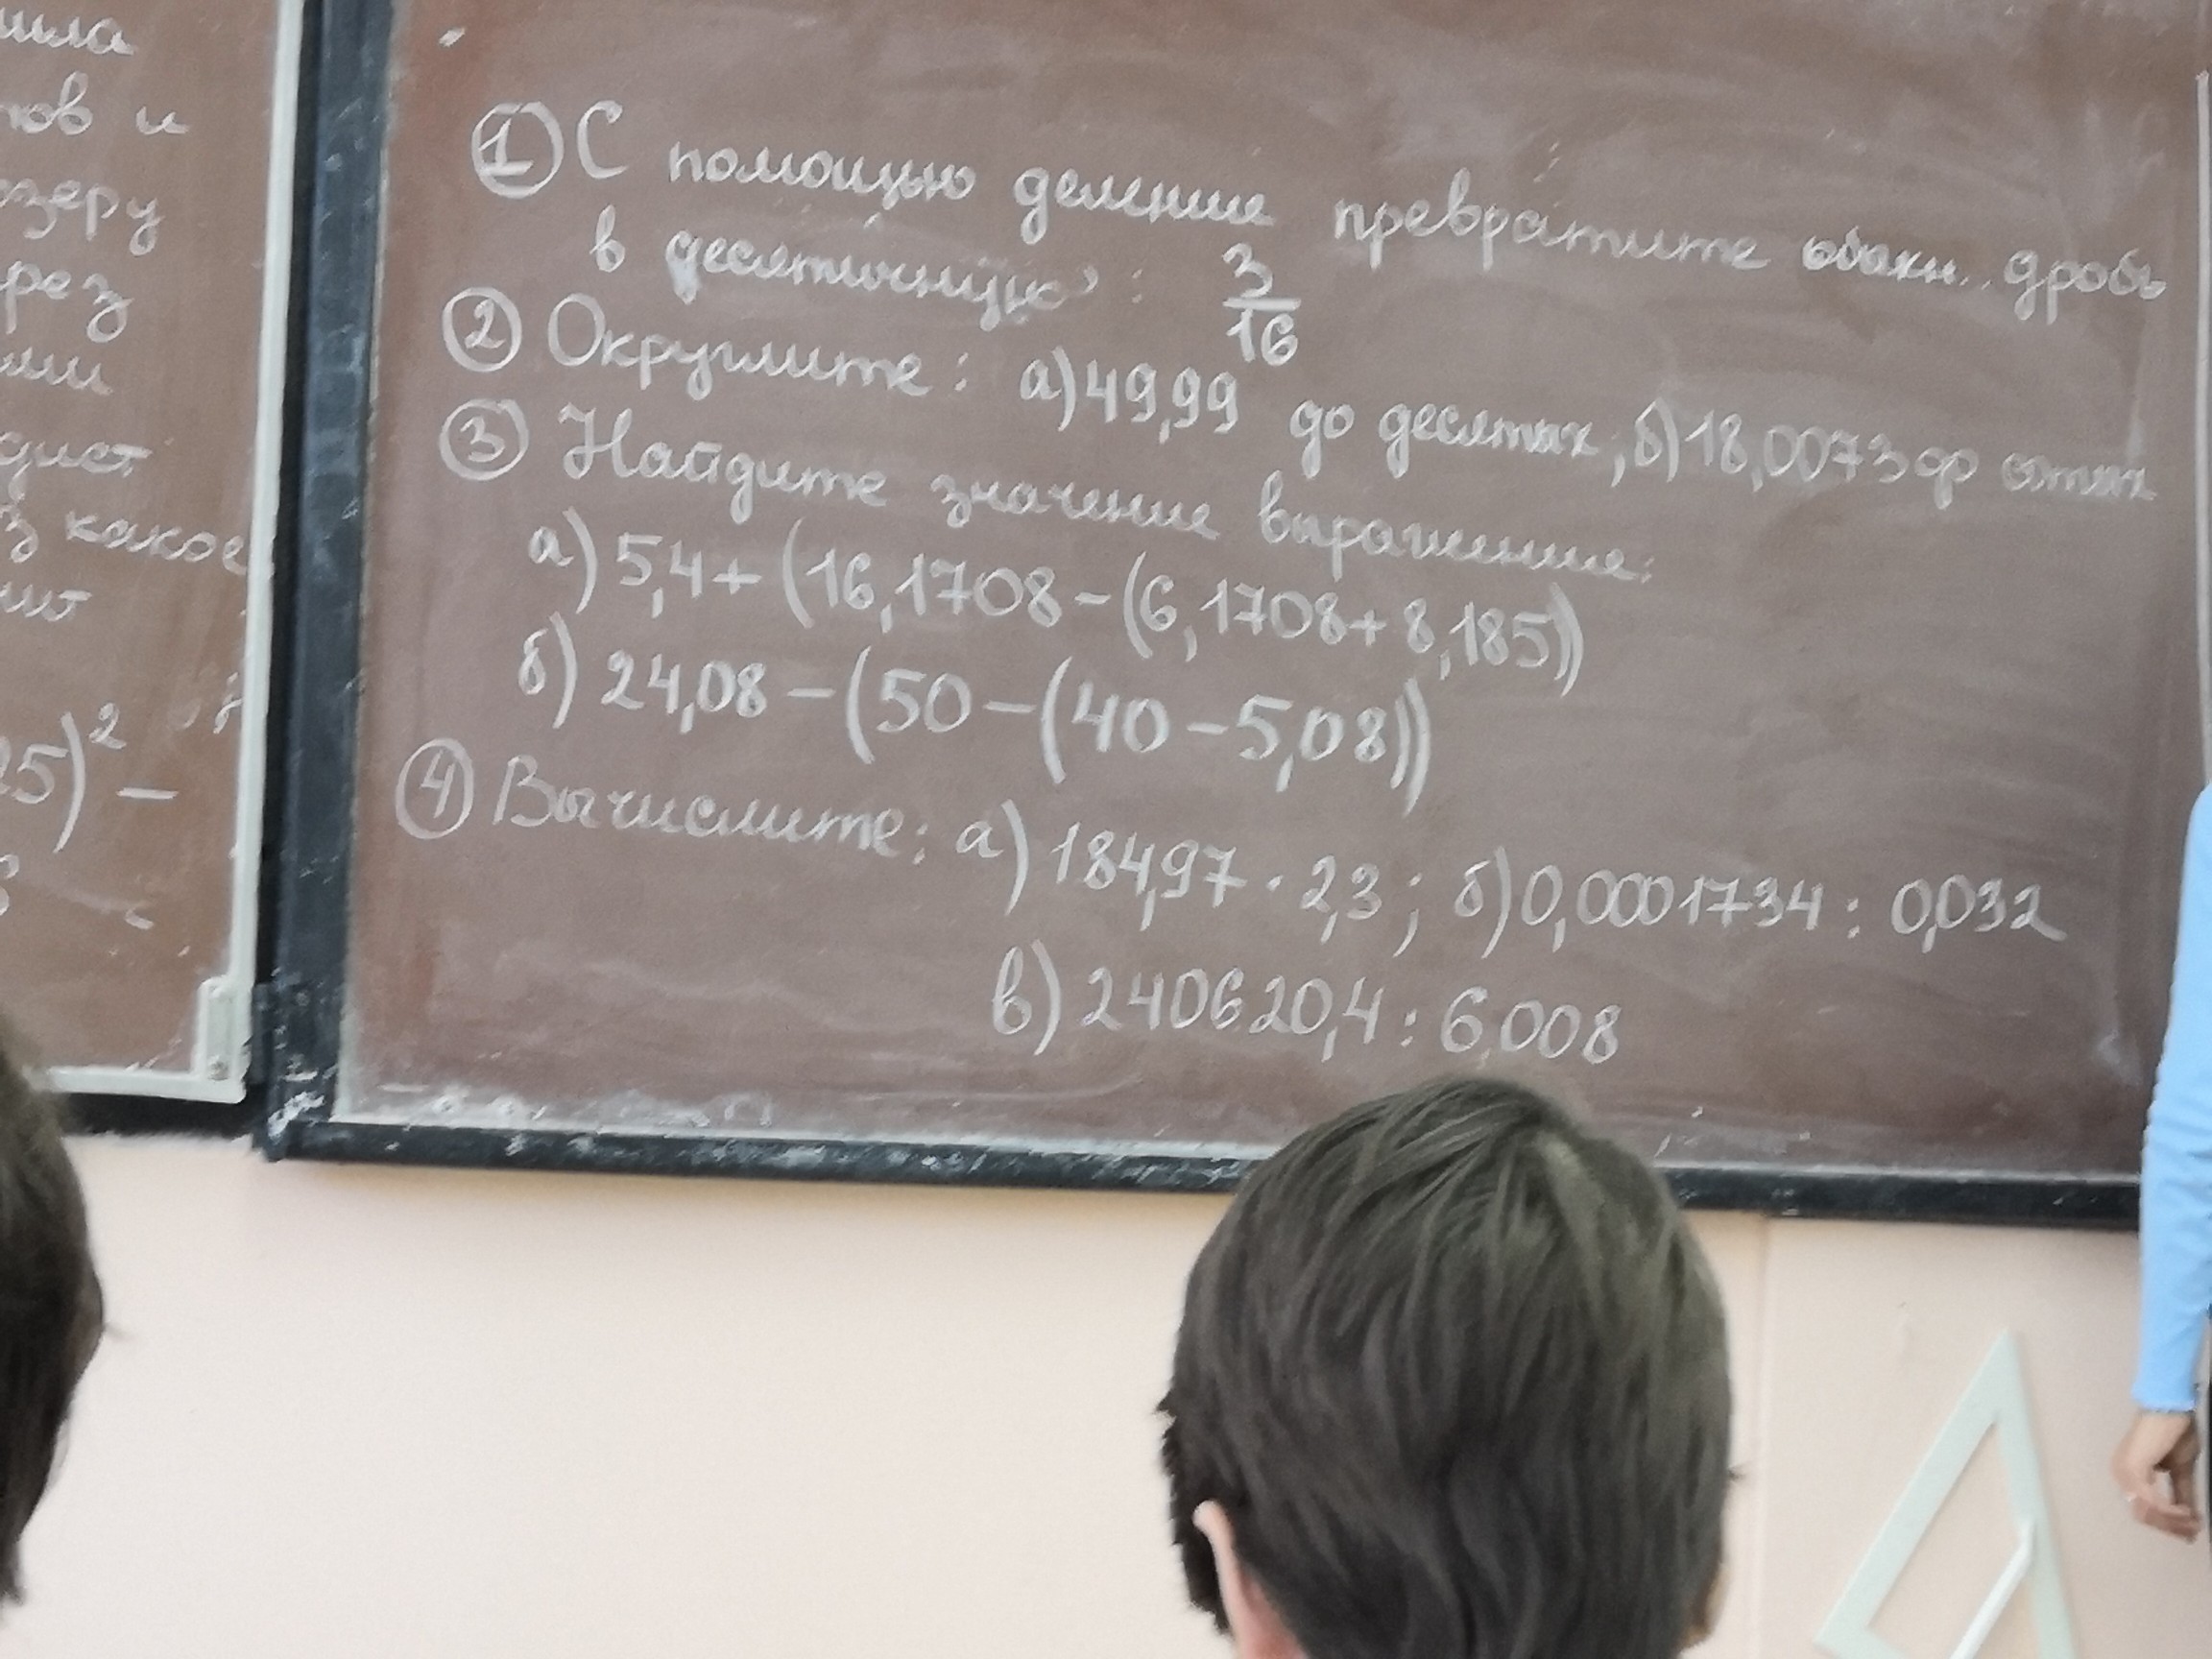 шла
тов и
озеру
рез
ми
дист
з какое
нит
25)² –
① С помощью деление превратите обыкн. дробь
в десятичную: 3/16
② Округлите: а) 49,99 до десятых; б) 18,0073 до сотых
③ Найдите значение выражение:
а) 5,4 + (16,1708 – (6,1708 + 8,185))
б) 24,08 – (50 – (40 – 5,08))
④ Вычислите: а) 184,97 · 2,3; б) 0,0001734 : 0,032
в) 240620,4 : 6,008